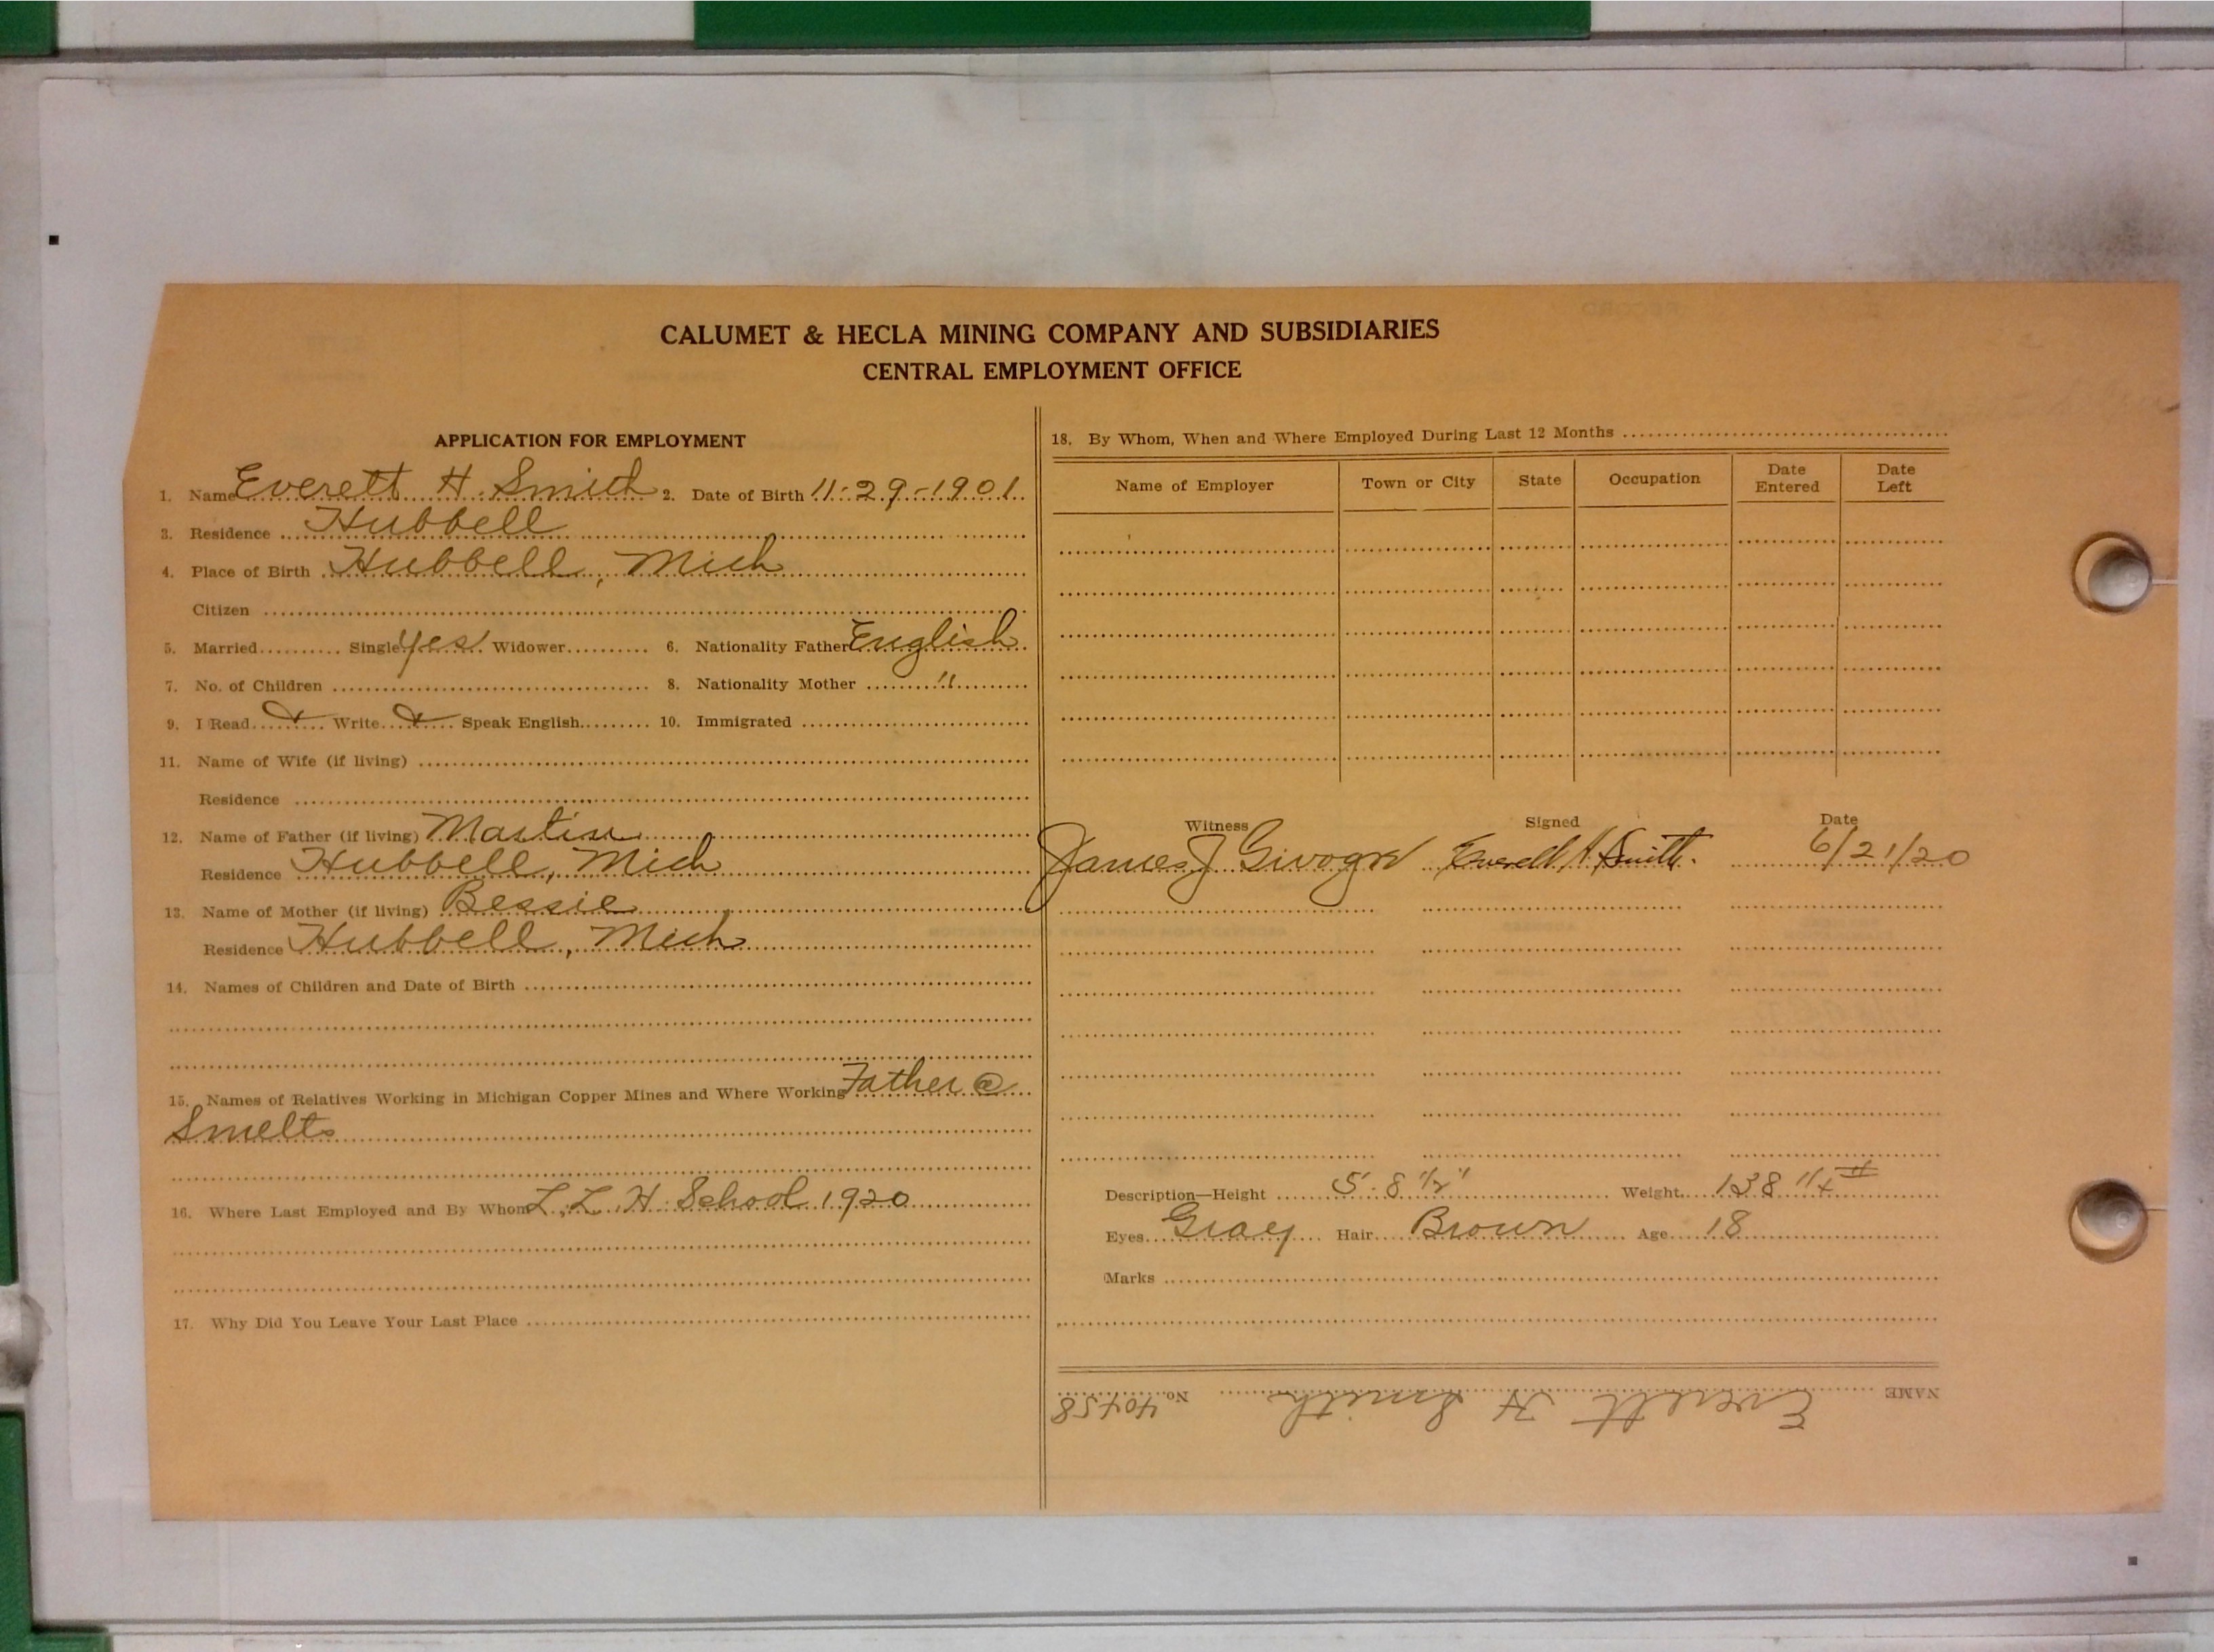 CALUMET & HECLA MINING COMPANY AND SUBSIDIARIES
CENTRAL EMPLOYMENT OFFICE
APPLICATION FOR EMPLOYMENT
1. Name Everett H. Smith 2. Date of Birth 11-29-1901
3. Residence Hubbell
4. Place of Birth Hubbell, Mich
Citizen
5. Married Single yes Widower 6. Nationality Father English
7. No. of Children 8. Nationality Mother "
9. I Read & Write & Speak English 10. Immigrated
11. Name of Wife (if living)
Residence
12. Name of Father (if living) Martin
Residence Hubbell, Mich
13. Name of Mother (if living) Bessie
Residence Hubbell, Mich
14. Names of Children and Date of Birth
15. Names of Relatives Working in Michigan Copper Mines and Where Working Father @
Smelts
16. Where Last Employed and By Whom L. L. H. School 1920
17. Why Did You Leave Your Last Place
18. By Whom, When and Where Employed During Last 12 Months
Name of Employer Town or City State Occupation Date Entered Date Left
Witness Signed Date
James J Everett H Smith. 6/21/20
Description—Height 5-8 1/2" Weight 138 1/4 #
Eyes Gray Hair Brown Age 18
Marks
NAME Everett H Smith No. 40458